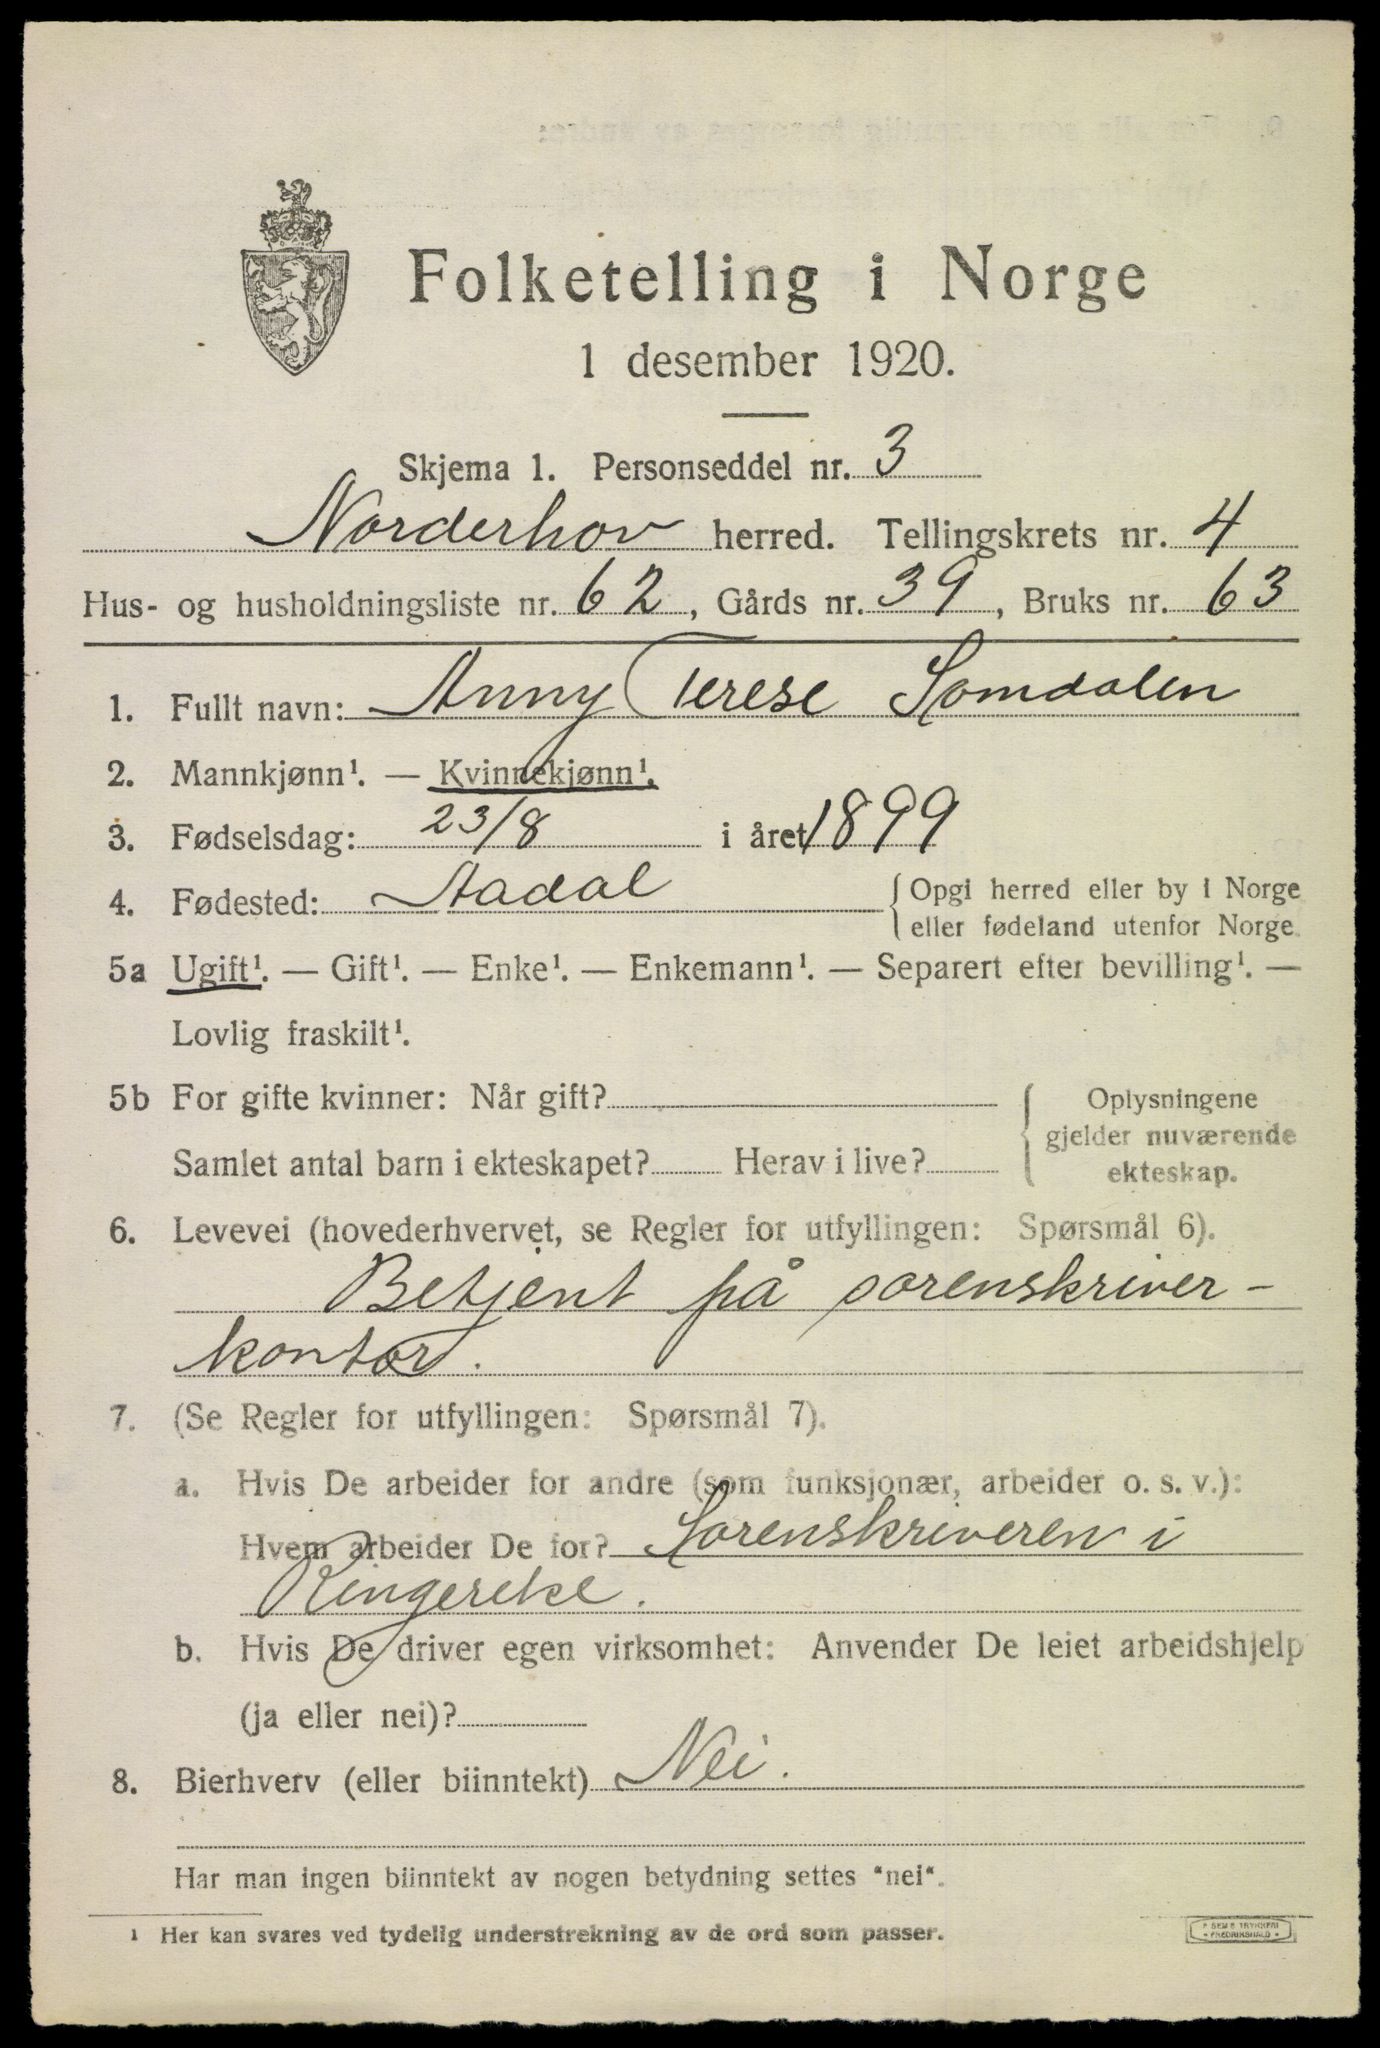 Folketelling i Norge
1 desember 1920.
Skjema 1. Personseddel nr. 3
Norderhov herred. Tellingskrets nr. 4
Hus- og husholdningsliste nr. 62, Gårds nr. 39, Bruks nr. 63
1. Fullt navn: Anny Terese Somdalen
2. Mannkjønn¹. — Kvinnekjønn¹.
3. Fødselsdag: 23/8 i året 1899
4. Fødested: Aadal { Opgi herred eller by i Norge
eller fødeland utenfor Norge.
5a Ugift¹. — Gift¹. — Enke¹. — Enkemann¹. — Separert efter bevilling¹. —
Lovlig fraskilt¹.
5b For gifte kvinner: Når gift?
Samlet antal barn i ekteskapet? Herav i live?
{ Oplysningene
gjelder nuværende
ekteskap.
6. Levevei (hovederhvervet, se Regler for utfyllingen: Spørsmål 6).
Betjent på sorenskriver-
kontor.
7. (Se Regler for utfyllingen: Spørsmål 7).
a. Hvis De arbeider for andre (som funksjonær, arbeider o. s. v.):
Hvem arbeider De for? Sorenskriveren i
Ringerike.
b. Hvis De driver egen virksomhet: Anvender De leiet arbeidshjelp
(ja eller nei)?
8. Bierhverv (eller biinntekt) Nei.
Har man ingen biinntekt av nogen betydning settes "nei".
¹ Her kan svares ved tydelig understrekning av de ord som passer.
SEM'S TRYKKERI
• FREDRIKSHALD •